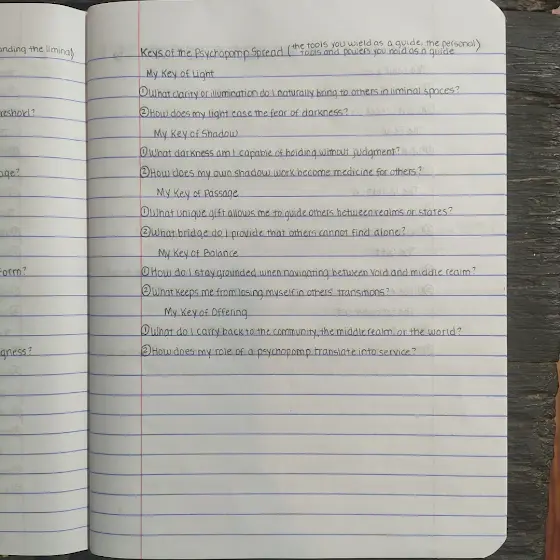 anding the liminal)
reshold?
age?
form?
gness?
Keys of the Psychopomp Spread (the tools you wield as a guide, the personal)
tools and powers you hold as a guide
My Key of Light
①What clarity or illumination do I naturally bring to others in liminal spaces?
②How does my light ease the fear of darkness?
My Key of Shadow
①What darkness am I capable of holding without judgment?
②How does my own shadow work become medicine for others?
My Key of Passage
①What unique gift allows me to guide others between realms or states?
②What bridge do I provide that others cannot find alone?
My Key of Balance
①How do I stay grounded when navigating between void and middle realm?
②What keeps me from losing myself in others' transitions?
My Key of Offering
①What do I carry back to the community, the middle realm, or the world?
②How does my role of a psychopomp translate into service?